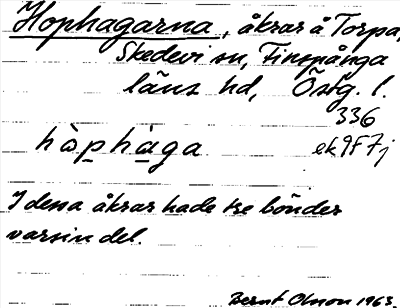 Hophagarna, åkrar å Torpa,
Skedevi sn, Finspånga
läns hd, Östg. l.
336
hòphàga ek9F7j
I dessa åkrar hade tre bönder
varsin del.
Bernt Olsson 1963.